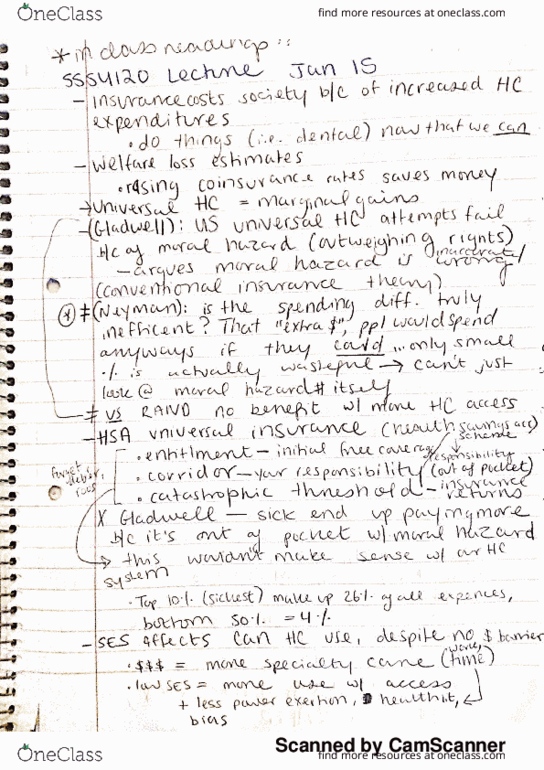 OneClass
find more resources at oneclass.com
* in class readings ::
SSSU120 Lecture Jan 15
- Insurance costs society b/c of increased HC
expenditures
• do things (i.e. dental) now that we can
- welfare loss estimates
• rising coinsurance rates saves money
→ universal HC = marginal gains
- (Gladwell): US universal HC attempts fail
b/c of moral hazard (outweighing rights)
- argues moral hazard is inaccurate/ wrong
(conventional insurance theory)
* ≠ (Nyman): is the spending diff. truly
inefficent? That "extra $", ppl would spend
anyways if they could ... only small
% is actually wasteful → can't just
look @ moral hazard # itself
≠ vs RAND no benefit w/ more HC access
- HSA universal insurance (health savings acc)
scheme
• entitlment - initial free coverage
• corridor - your responsibility (out of pocket)
responsibility
• catastrophic threshold - insurance
returns
X Gladwell - sick end up paying more
b/c it's out of pocket w/ moral hazard
→ this wouldn't make sense w/ our HC
system
• Top 10% (sickest) make up 26% of all expenses,
bottom 50% = 4%
- SES affects Can HC use, despite no $ barrier
• $$$ = more specialty care (time)
• low SES = more use w/ access
+ less power exertion, health lit,
bias
Scanned by CamScanner
OneClass
find more resources at oneclass.com